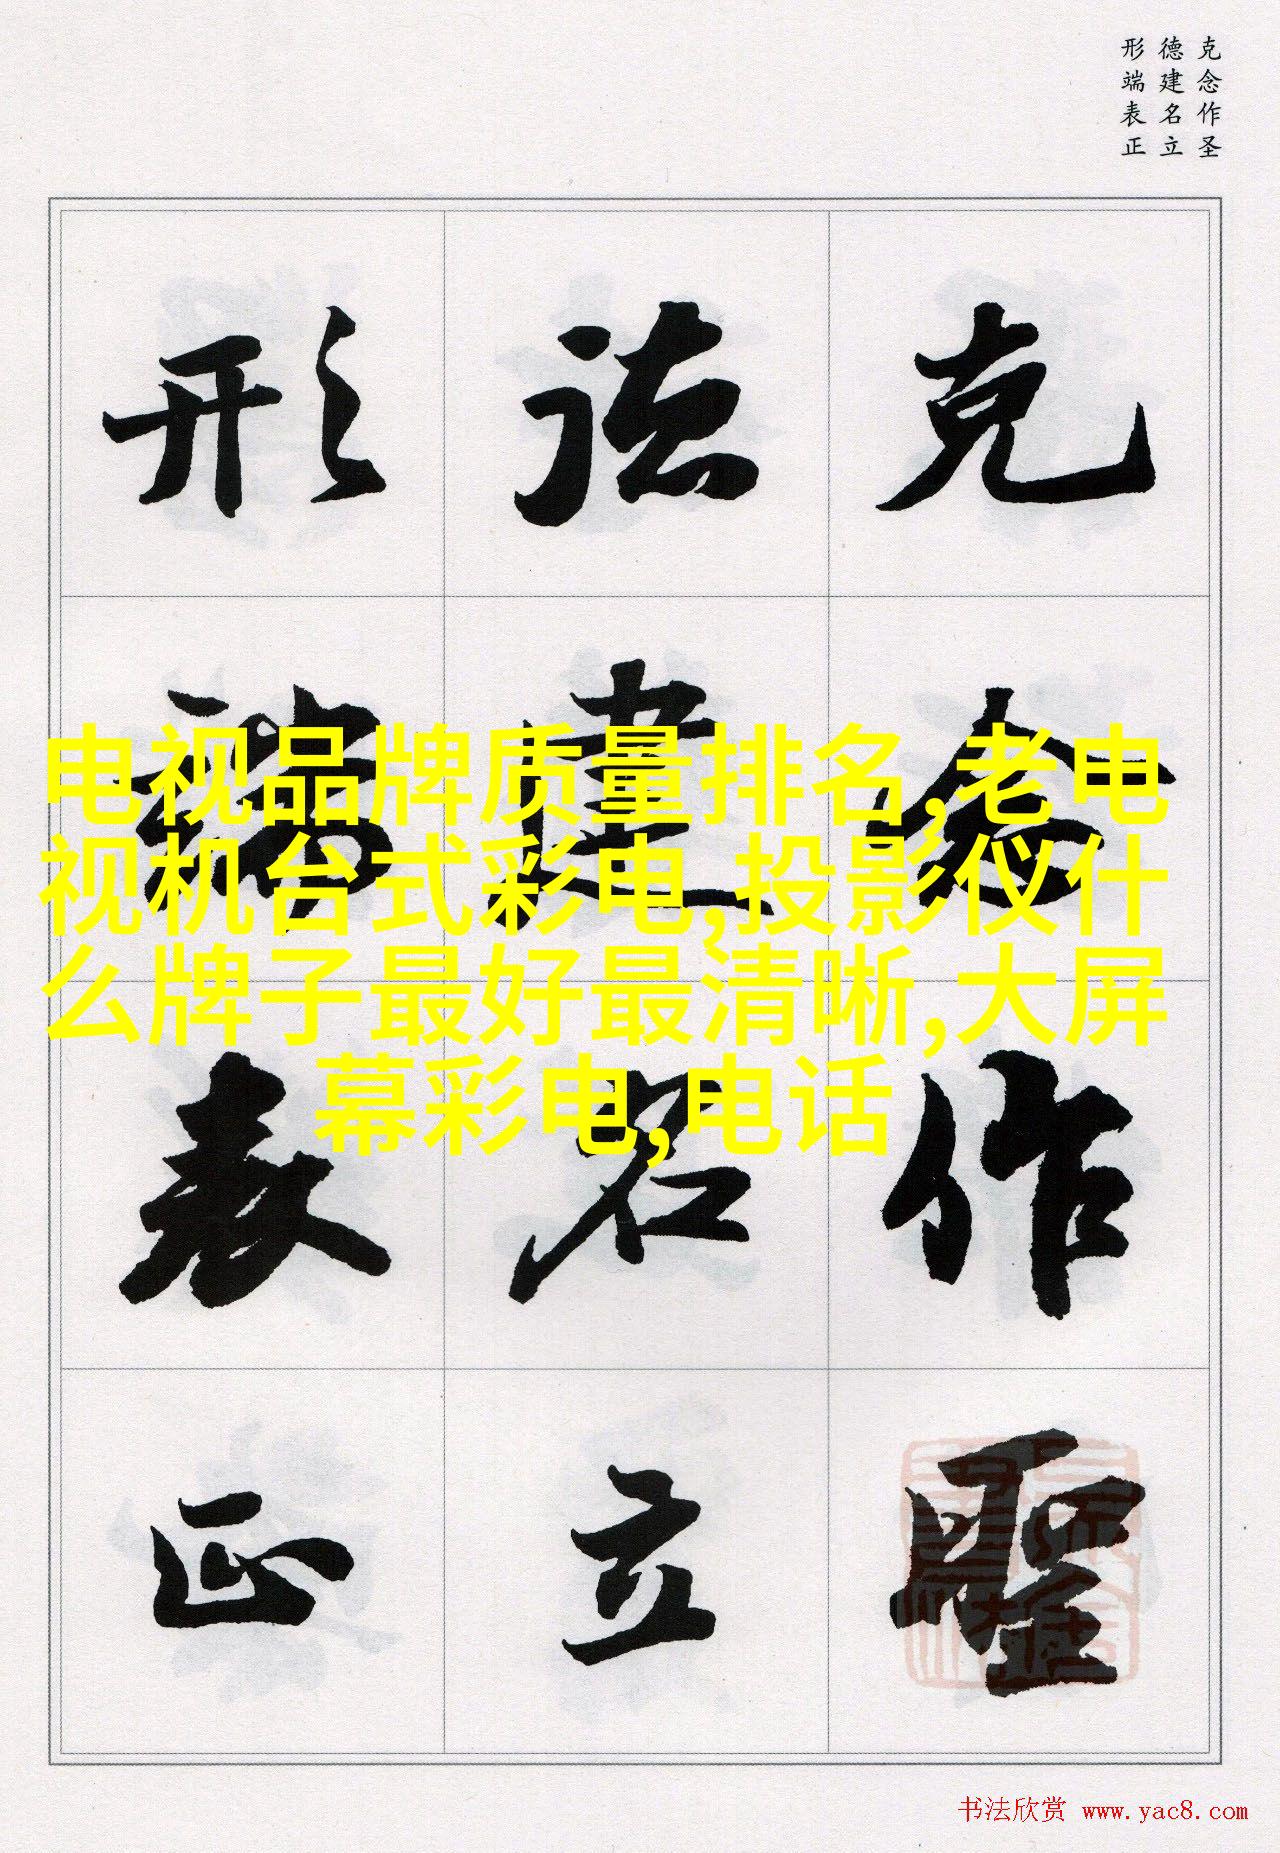 克念作圣
德建名立
形端表正
克念作聖
德建名立
形端表正
电视品牌质量排名,老电
视机台式彩电,投影仪什
么牌子最好最清晰,大屏
幕彩电,电话
书法欣赏 www.yac8.com